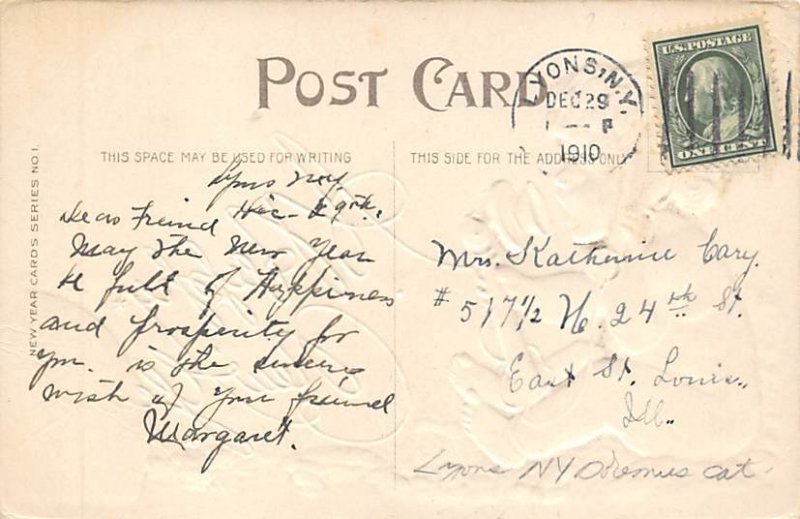 POST CARD
LYONS, N.Y.
DEC 29
P
1910
U.S. POSTAGE
ONE CENT
THIS SPACE MAY BE USED FOR WRITING
THIS SIDE FOR THE ADDRESS ONLY
NEW YEAR CARDS SERIES NO 1.
Lyons NY
Dec - 29th.
Dear Friend
May the New Year
be full of Happiness
and prosperity for
you. is the sincere
wish of your friend
Margaret.
Mrs. Katherine Cary.
# 517 1/2 N. 24th St.
East St. Louis.,
Ill.
Lyons NY Doremus cat